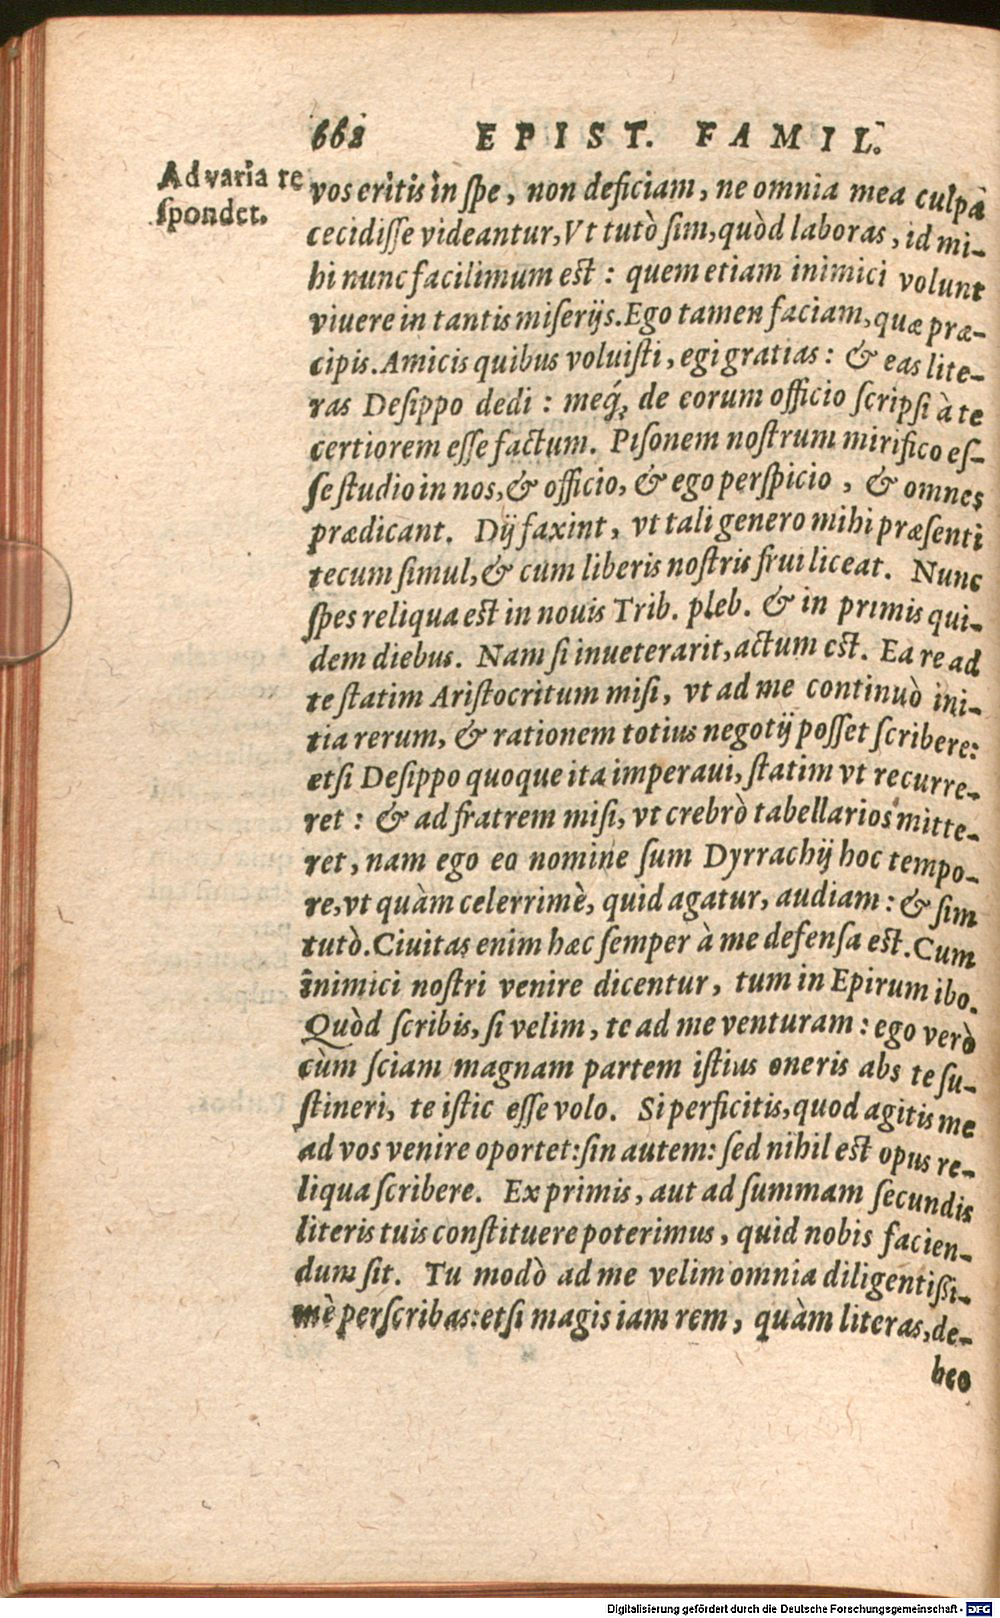 662 EPIST. FAMIL.
Ad varia re
spondet.
vos eritis in ſpe, non deficiam, ne omnia mea culpâ
cecidiſſe videantur, Vt tutò ſim, quòd laboras, id mi-
hi nunc facilimum est : quem etiam inimici volunt
viuere in tantis miſerijs. Ego tamen faciam, quæ præ-
cipis. Amicis quibus voluiſti, egi gratias : & eas lite-
ras Deſippo dedi : meq́; de eorum officio ſcripſi à te
certiorem eſſe factum. Piſonem noſtrum mirifico eſ-
ſe ſtudio in nos, & officio, & ego perſpicio, & omnes
prædicant. Dij faxint, vt tali genero mihi præſenti
tecum ſimul, & cum liberis noſtris frui liceat. Nunc
ſpes reliqua est in nouis Trib. pleb. & in primis qui-
dem diebus. Nam ſi inueterarit, actum est. Ea re ad
te ſtatim Ariſtocritum miſi, vt ad me continuò ini-
tia rerum, & rationem totius negotij poſſet ſcribere:
etſi Deſippo quoque ita imperaui, ſtatim vt recurre-
ret : & ad fratrem miſi, vt crebrò tabellarios mitte-
ret, nam ego eo nomine ſum Dyrrachij hoc tempo-
re, vt quàm celerrimè, quid agatur, audiam : & ſim
tutò. Ciuitas enim hæc ſemper à me defenſa est. Cum
inimici noſtri venire dicentur, tum in Epirum ibo.
Quòd ſcribis, ſi velim, te ad me venturam : ego verò
cùm ſciam magnam partem iſtius oneris abs te ſu-
ſtineri, te iſtic eſſe volo. Si perficitis, quod agitis me
ad vos venire oportet: ſin autem: ſed nihil est opus re-
liqua ſcribere. Ex primis, aut ad ſummam ſecundis
literis tuis conſtituere poterimus, quid nobis facien-
dum ſit. Tu modò ad me velim omnia diligentiſſi-
mè perſcribas: etſi magis iam rem, quàm literas, de-
beo
Digitalisierung gefördert durch die Deutsche Forschungsgemeinschaft - DFG